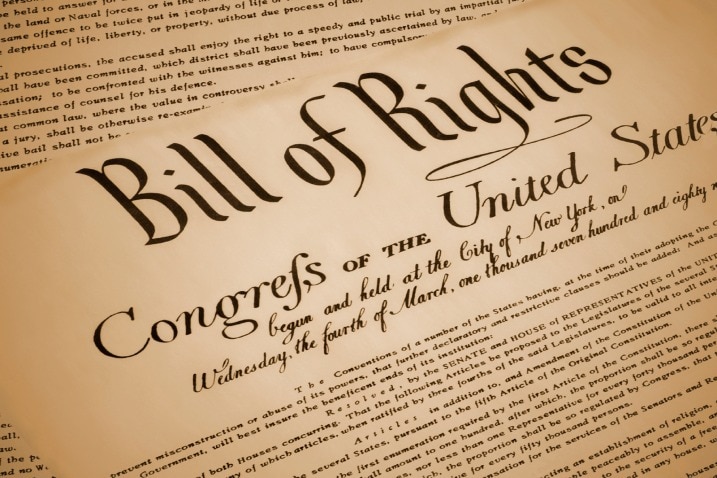 be held to answer for
the land or Naval forces, or in the
same offence to be twice put in jeopardy of life or
deprived of life, liberty, or property, without due process of law;
prosecutions, the accused shall enjoy the right to a speedy and public trial by an impartial
have been committed, which district shall have been previously ascertained by law, and
to be confronted with the witnesses against him; to have compulsory
assistance of counsel for his defence.
at common law, where the value in controversy shall
a jury, shall be otherwise
bail shall not be
Bill of Rights
Congreſs OF THE United States
begun and held at the City of New York, on
Wednesday, the fourth of March, one thousand seven hundred and eighty
The Conventions of a number of the States having, at the time of their adopting the
prevent misconstruction or abuse of its powers, that further declaratory and restrictive clauses should be added: And as
Government, will best insure the beneficent ends of its institution;
Resolved, by the SENATE and HOUSE of REPRESENTATIVES of the
of both Houses concurring. That the following Articles be proposed to the Legislatures of the several
of which articles, when ratified by three fourths of the said Legislatures, to be valid to all
Articles in addition to, and Amendment of the Constitution of the
the several States, pursuant to the fifth Article of the Original Constitution.
the first enumeration required by the first Article of the Constitution, there
shall amount to one hundred, after which, the proportion shall be so
nor less than one Representative for every forty thousand
the proportion shall be so regulated by Congress, that
for every fifty thousand persons.
for the services of the Senators and
an establishment of religion,
peaceably to assemble,
to the security of a free
in any house,